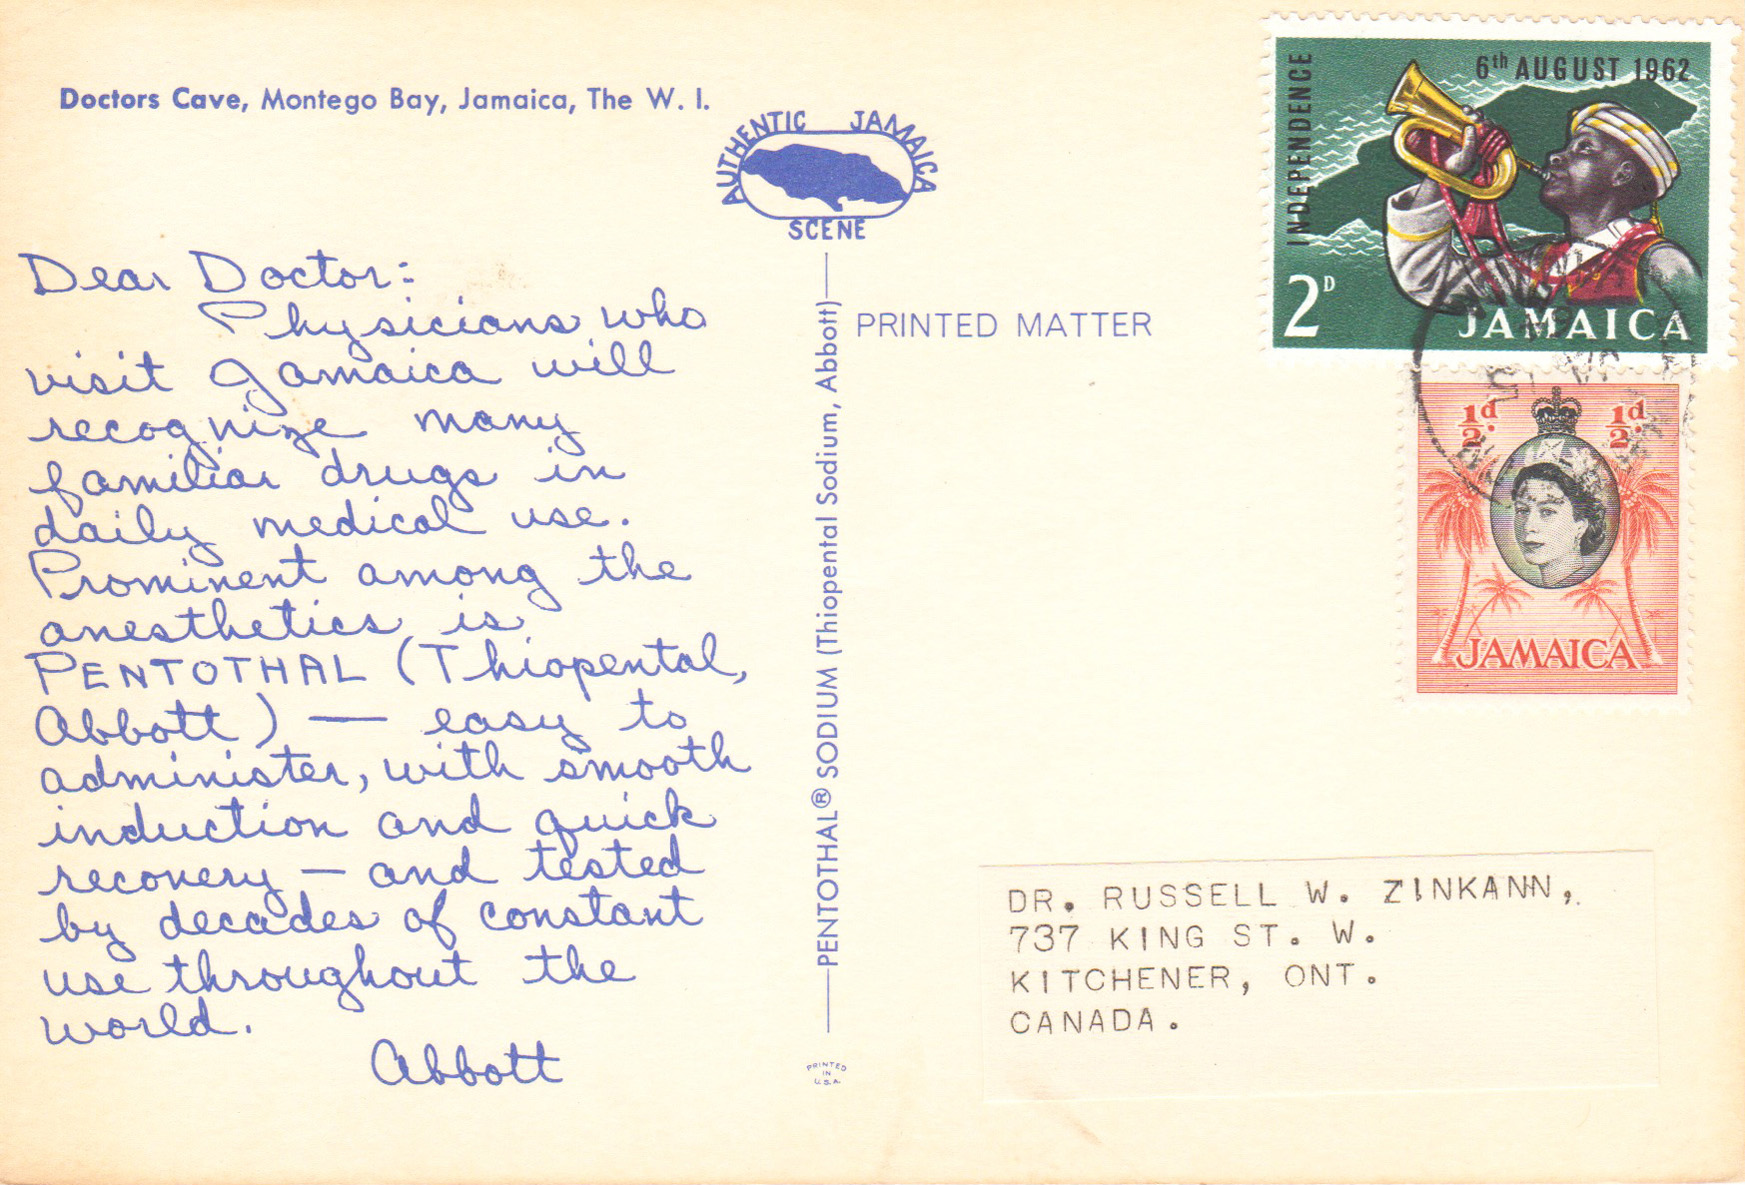 Doctors Cave, Montego Bay, Jamaica, The W. I.
AUTHENTIC JAMAICA
SCENE
Dear Doctor:
Physicians who
visit Jamaica will
recognize many
familiar drugs in
daily medical use.
Prominent among the
anesthetics is
PENTOTHAL (Thiopental,
Abbott) — easy to
administer, with smooth
induction and quick
recovery — and tested
by decades of constant
use throughout the
world.
Abbott
PENTOTHAL® SODIUM (Thiopental Sodium, Abbott)
PRINTED
IN
U.S.A.
PRINTED MATTER
INDEPENDENCE
6th AUGUST 1962
2D
JAMAICA
½d. ½d.
JAMAICA
DR. RUSSELL W. ZINKANN,
737 KING ST. W.
KITCHENER, ONT.
CANADA.